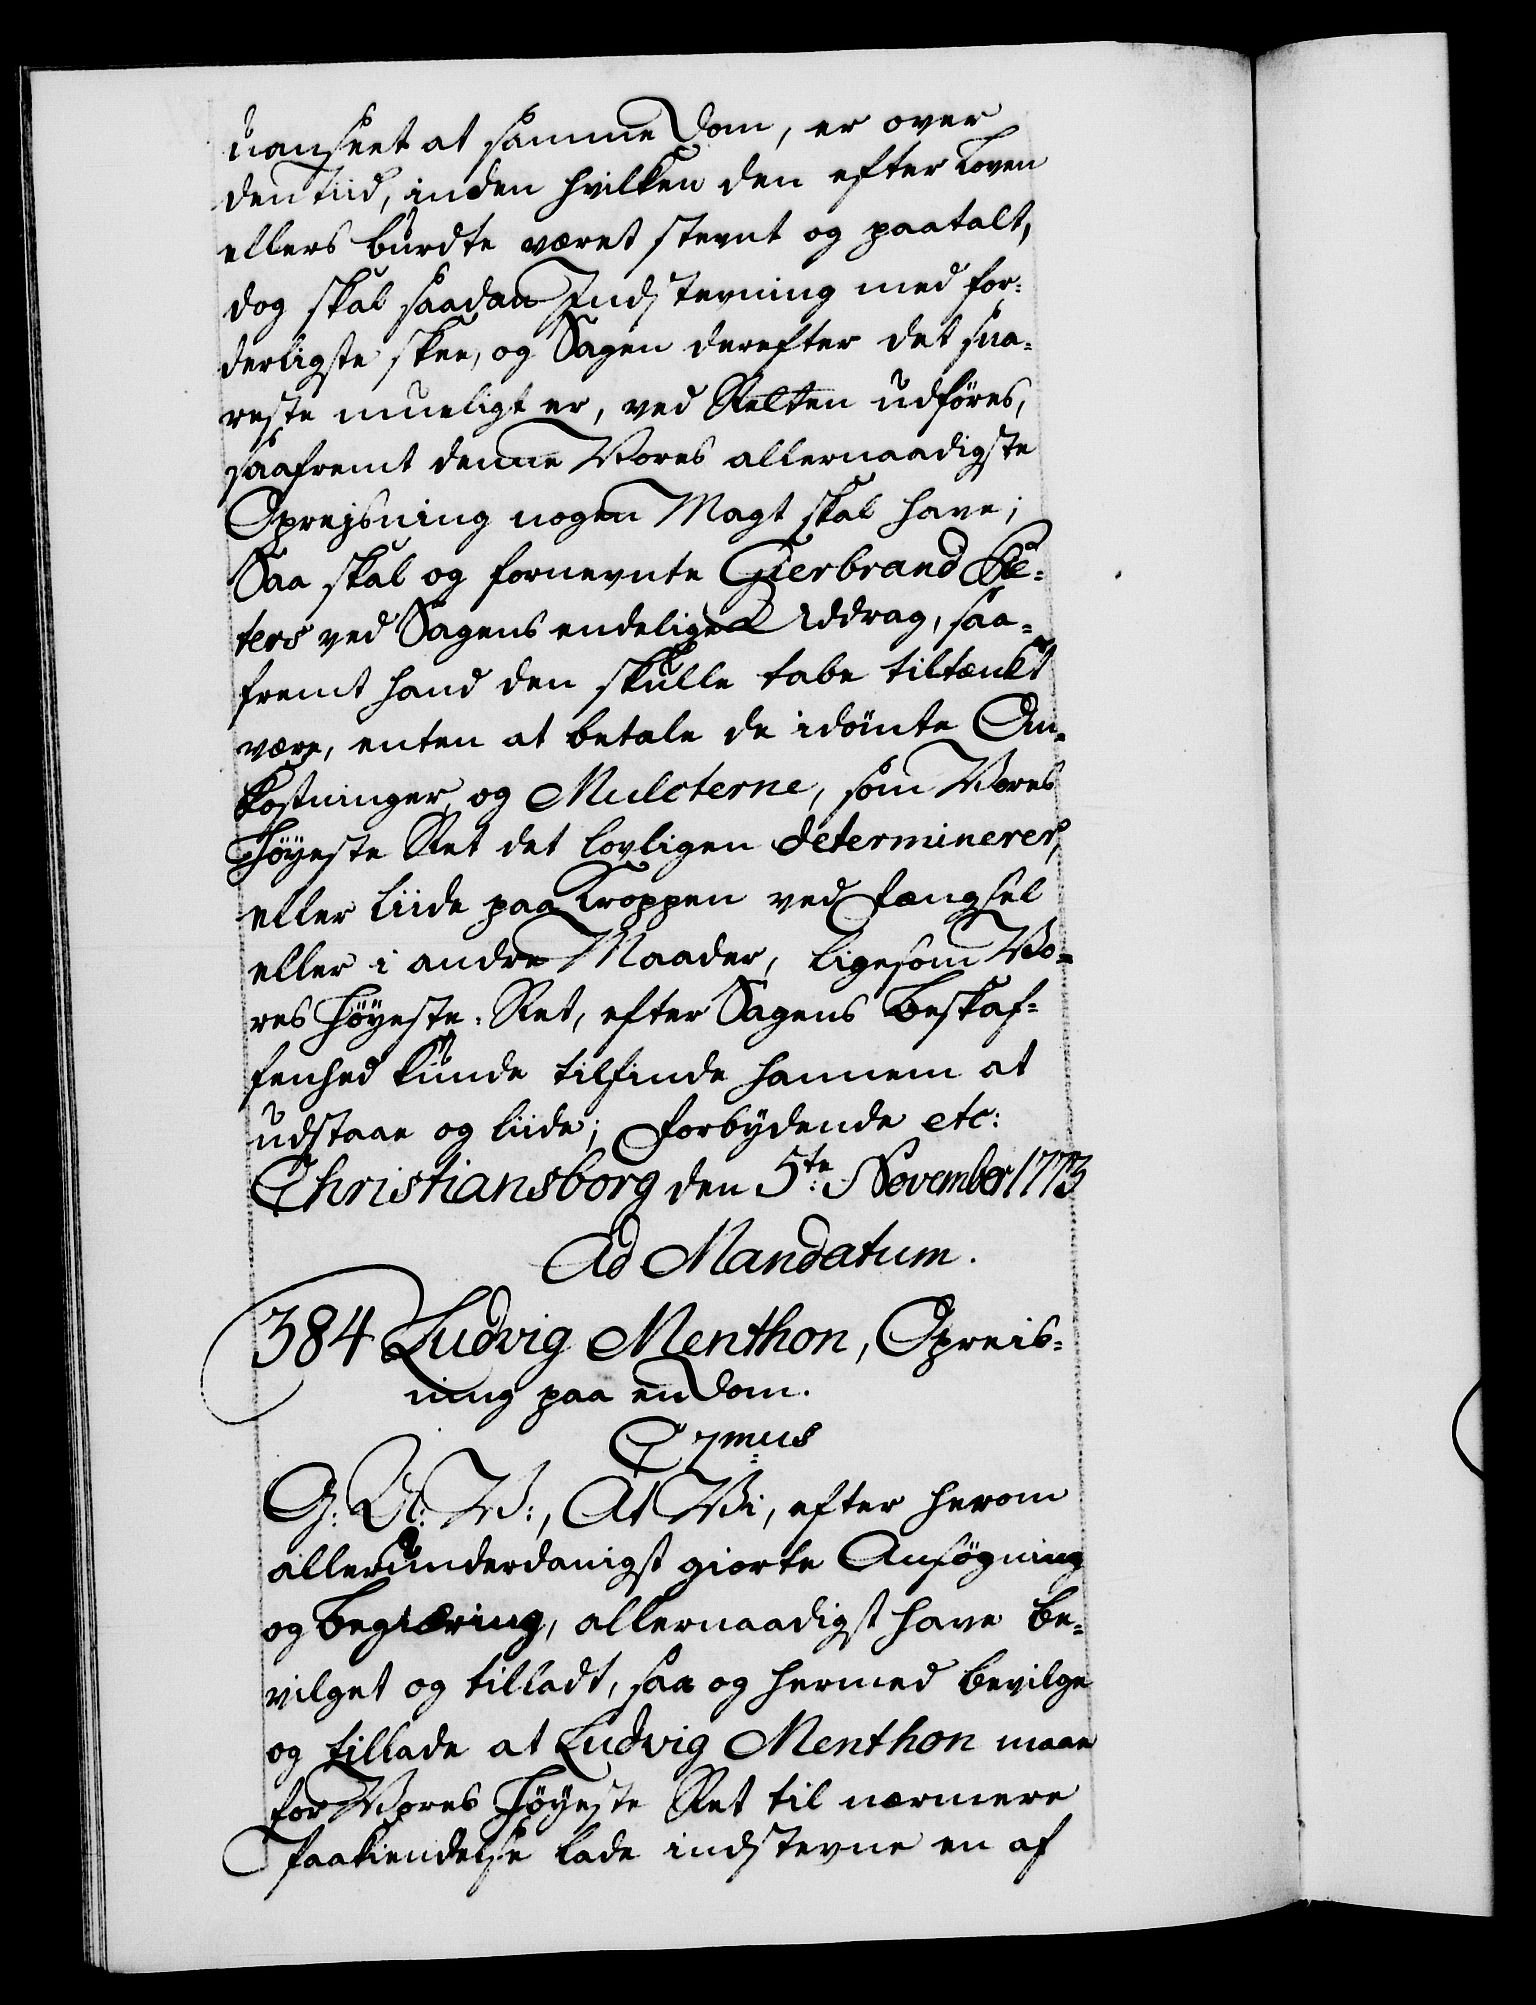 uanseet at samme Dom, er over
den Tiid, inden hvilken den efter Loven
ellers burdte været stevnt og paatalt,
dog skal saadan Indstevning med for-
derligste skee, og Sagen derefter det sna-
reste mueligt er, ved Retten udføres,
saafremt denne Vores allernaadigste
Oprejsning nogen Magt skal have;
Saa skal og fornevnte Gierbrand Pe-
ters ved Sagens endelige Uddrag, saa-
fremt hand den skulle tabe tiltænkt
være, enten at betale de idømte Om-
kostninger og Mulcterne, som Vores
Høyeste Ret det lovligen determinerer,
eller liide paa Kroppen ved Fængsel
eller i andre Maader, ligesom Vo-
res Høyeste-Ret, efter Sagens Beskaf-
fenhed kunde tilfinde hannem at
udstaae og liide; Forbydende etc:
Christiansborg den 5te: November 1773
Ad Mandatum.
384 Ludvig Menthon, Opreis-
ning paa en Dom.
C 7mus
G: A: V:, At Vi, efter herom
allerunderdanigst giorte Ansøgning
og Begiæring, allernaadigst have be-
vilget og tilladt, saa og hermed bevilge
og tillade at Ludvig Menthon maae
for Vores Høyeste Ret til nærmere
Paakiendelse lade indstevne en af